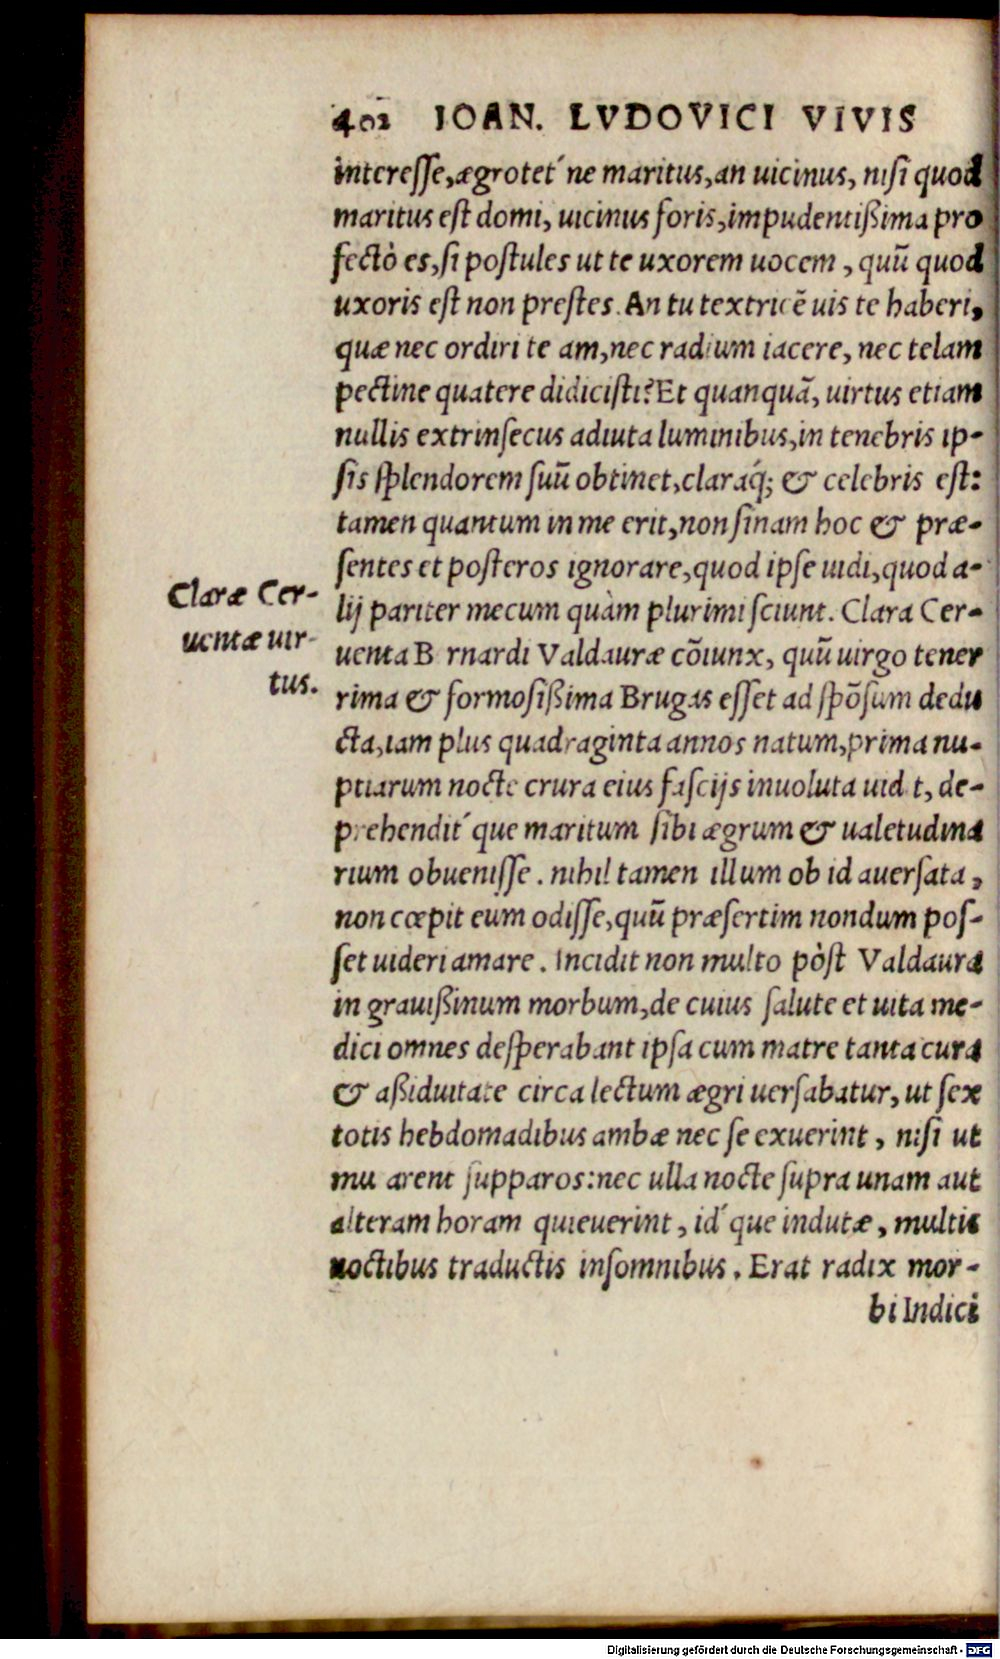 402 IOAN. LVDOVICI VIVIS
interesse, ægrotet´ne maritus, an uicinus, nisi quod
maritus est domi, uicinus foris, impudentißima pro
fectò es, si postules ut te uxorem uocem, quũ quod
uxoris est non prestes. An tu textricẽ uis te haberi,
quæ nec ordiri te am, nec radium iacere, nec telam
pectine quatere didicisti? Et quanquã, uirtus etiam
nullis extrinsecus adiuta luminibus, in tenebris ip-
sis splendorem suũ obtinet, claraq́; & celebris est:
tamen quantum in me erit, non sinam hoc & præ-
sentes et posteros ignorare, quod ipse uidi, quod a-
lij pariter mecum quàm plurimi sciunt. Clara Cer-
uenta B rnardi Valdauræ cõiunx, quũ uirgo tener
rima & formosißima Brugas esset ad spõsum dedu
cta, iam plus quadraginta annos natum, prima nu-
ptiarum nocte crura eius fascijs inuoluta uid t, de-
prehendit´que maritum sibi ægrum & ualetudina
rium obuenisse. nihil tamen illum ob id auersata,
non cœpit eum odisse, quũ præsertim nondum pos-
set uideri amare. Incidit non multo pòst Valdaura
in grauißinum morbum, de cuius salute et uita me-
dici omnes desperabant ipsa cum matre tanta cura
& aßiduitate circa lectum ægri uersabatur, ut sex
totis hebdomadibus ambæ nec se exuerint, nisi ut
mu arent supparos: nec ulla nocte supra unam aut
alteram horam quieuerint, id´que indutæ, multis
noctibus traductis insomnibus. Erat radix mor-
bi Indici
Claræ Cer-
uentæ uir-
tus.
Digitalisierung gefördert durch die Deutsche Forschungsgemeinschaft - DFG